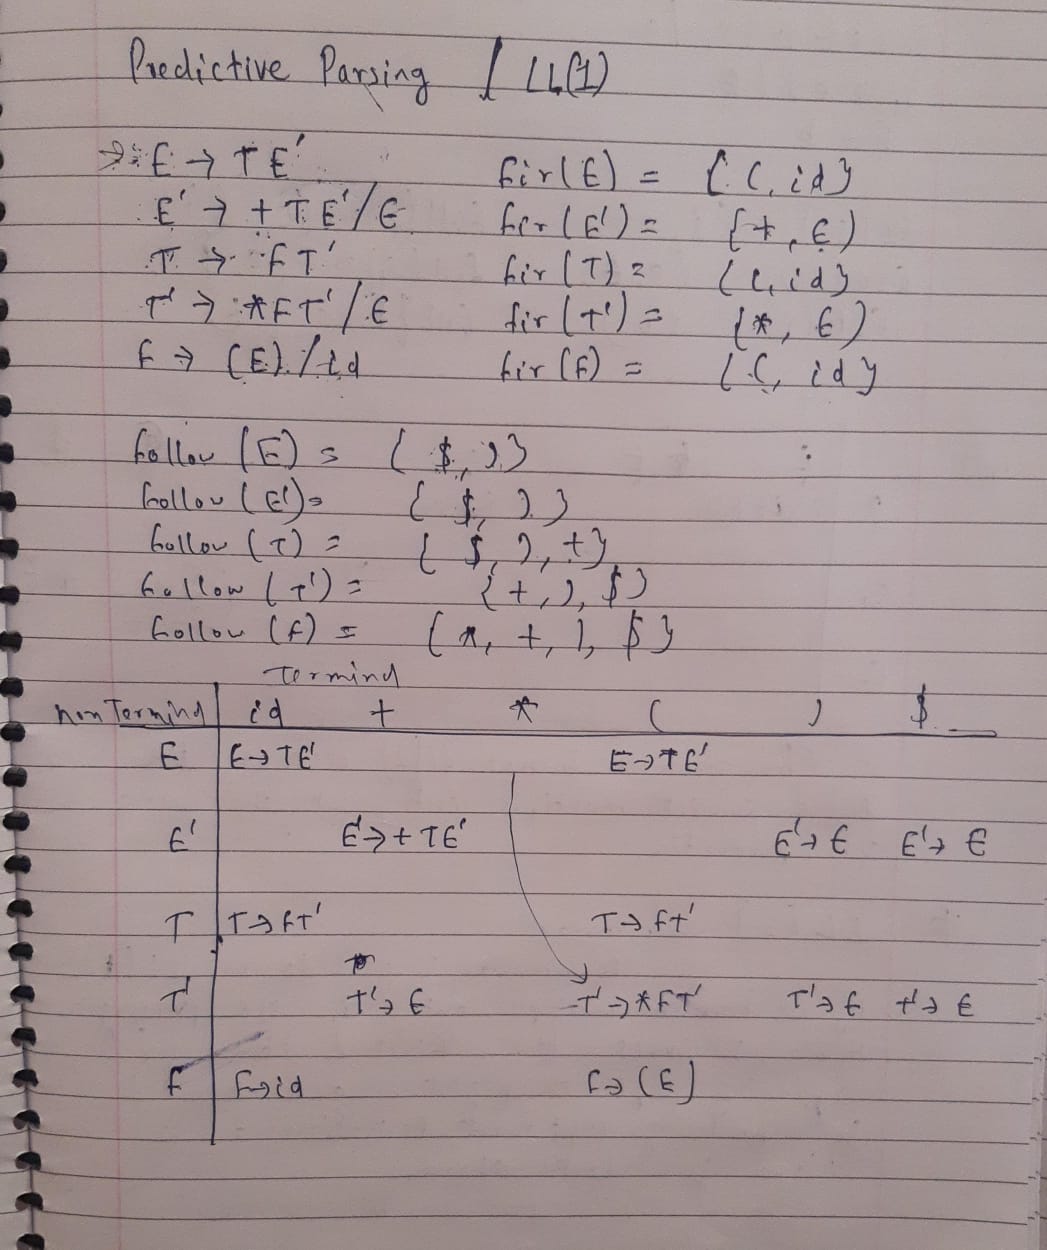 Predictive Parsing / LL(1)
E → TE' fir(E) = {(, id}
E' → +TE'/ε fir(E') = {+, ε)
T → FT' fir(T) = {(, id}
T' → *FT'/ε fir(T') = {*, ε)
F → (E)/id fir(F) = {(, id}
follow (E) = { $, )}
follow (E') = { $, ) }
follow (T) = { $, ), +}
follow (T') = {+, ), $}
follow (F) = {*, +, ), $}
Terminal
non Terminal id + * ( ) $
E E→TE' E→TE'
E' E'→+TE' E'→ε E'→ε
T T→FT' T→FT'
T' T'→ε T'→*FT' T'→ε T'→ε
F F→id F→(E)